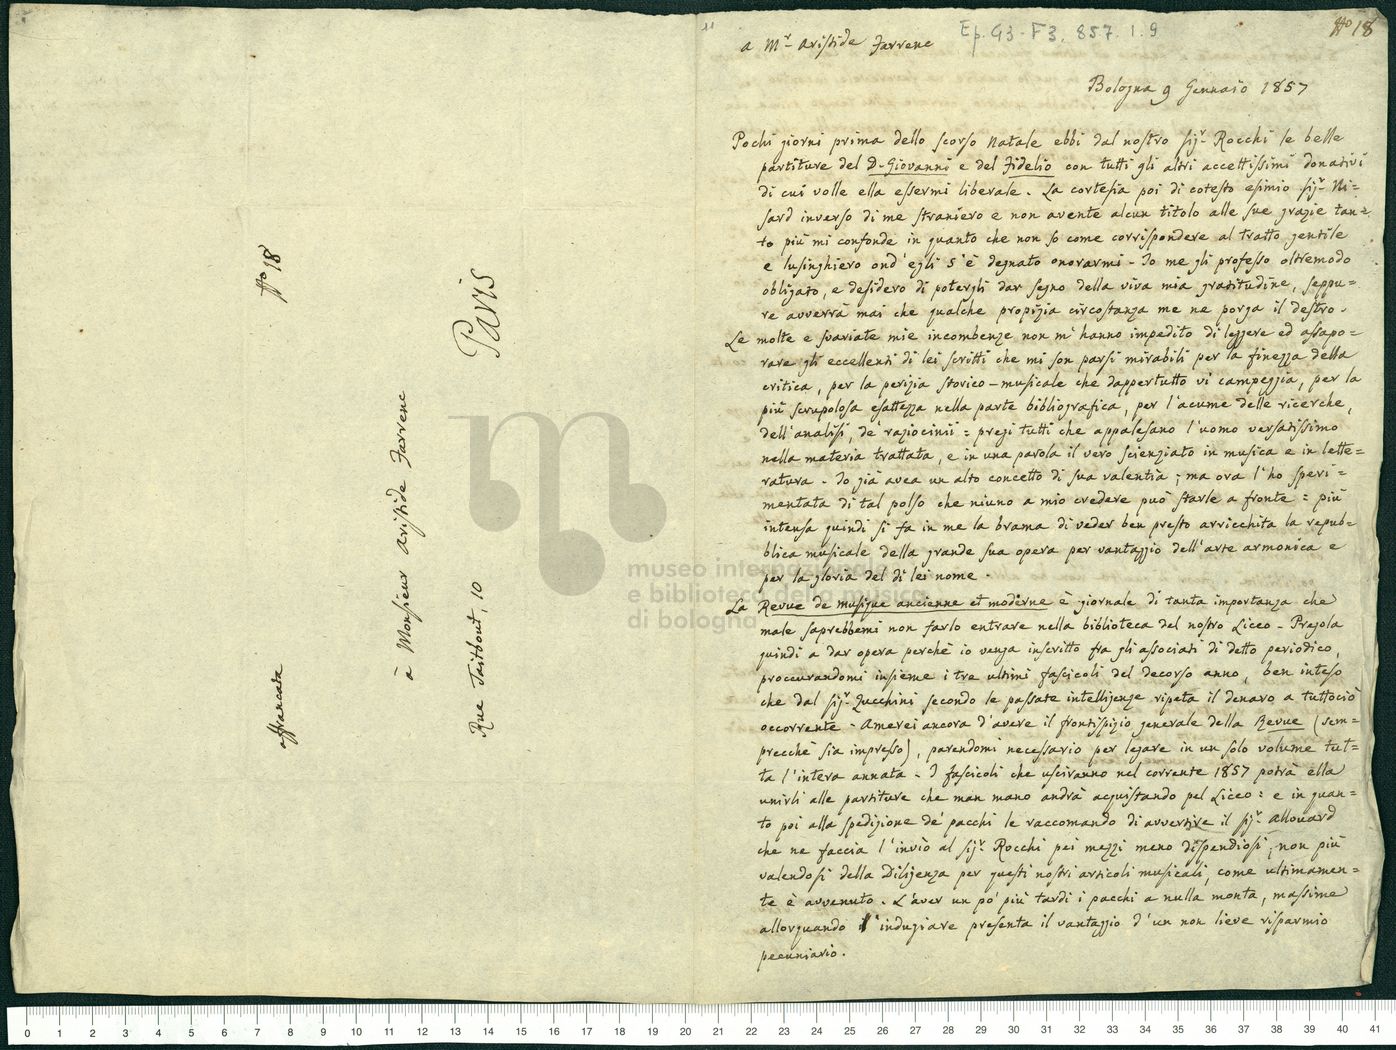 No 18
affrancata
à Monsieur Aristide Farrenc
Rue Taitbout, 10
Paris
Ep. G3-F3. 857. 1. 9
No 18
a Mr. Aristide Farrenc
Bologna 9 Gennaio 1857
Pochi giorni prima dello scorso Natale ebbi dal nostro sigr. Rocchi le belle
partiture del D. Giovanni e del Fidelio con tutti gli altri accettissimi donativi
di cui volle ella essermi liberale. La cortesia poi di cotesto esimio sigr. Ni=
sard inverso di me straniero e non avente alcun titolo alle sue grazie tan=
to più mi confonde in quanto che non so come corrispondere al tratto gentile
e lusinghiero ond'egli s'è degnato onorarmi. Io me gli professo oltremodo
obligato, e desidero di potergli dar segno della viva mia gratitudine, seppu=
re avverrà mai che qualche propizia circostanza me ne porga il destro.
Le molte e svariate mie incombenze non m'hanno impedito di leggere ed assapo=
rare gli eccellenti di lei scritti che mi son parsi mirabili per la finezza della
critica, per la perizia storico-musicale che dappertutto vi campeggia, per la
più scrupolosa esattezza nella parte bibliografica, per l'acume delle ricerche,
dell'analisi, de' raziocinii = pregi tutti che appalesano l'uomo versatissimo
nella materia trattata, e in una parola il vero scienziato in musica e in lette=
ratura. Io già avea un alto concetto di sua valentia; ma ora l'ho speri=
mentata di tal polso che niuno a mio credere può starle a fronte = più
intensa quindi si fa in me la brama di veder ben presto arricchita la repub=
blica musicale della grande sua opera per vantaggio dell'arte armonica e
per la gloria del di lei nome.
La Revue de Musique ancienne et moderne è giornale di tanta importanza che
male saprebbemi non farlo entrare nella biblioteca del nostro Liceo. Pregola
quindi a dar opera perchè io venga inscritto fra gli associati di detto periodico,
proccurandomi insieme i tre ultimi fascicoli del decorso anno, ben inteso
che dal sigr. Zucchini secondo le passate intelligenze ripeta il denaro a tuttociò
occorrente. Amerei ancora d'avere il frontispizio generale della Revue (sem=
precchè sia impresso), parendomi necessario per legare in un solo volume tut=
ta l'intera annata. I fascicoli che usciranno nel corrente 1857 potrà ella
unirli alle partiture che man mano andrà acquistando pel Liceo: e in quan=
to poi alla spedizione de' pacchi le raccomando di avvertire il sigr. Allouard
che ne faccia l'invio al sigr. Rocchi pei mezzi meno dispendiosi, non più
valendosi della Diligenza per questi nostri articoli musicali, come ultimamen=
te è avvenuto. L'aver un po' più tardi i pacchi a nulla monta, massime
allorquando l'indugiare presenta il vantaggio d'un non lieve risparmio
pecuniario.
museo internazionale
e biblioteca della musica
di bologna
0 1 2 3 4 5 6 7 8 9 10 11 12 13 14 15 16 17 18 19 20 21 22 23 24 25 26 27 28 29 30 31 32 33 34 35 36 37 38 39 40 41